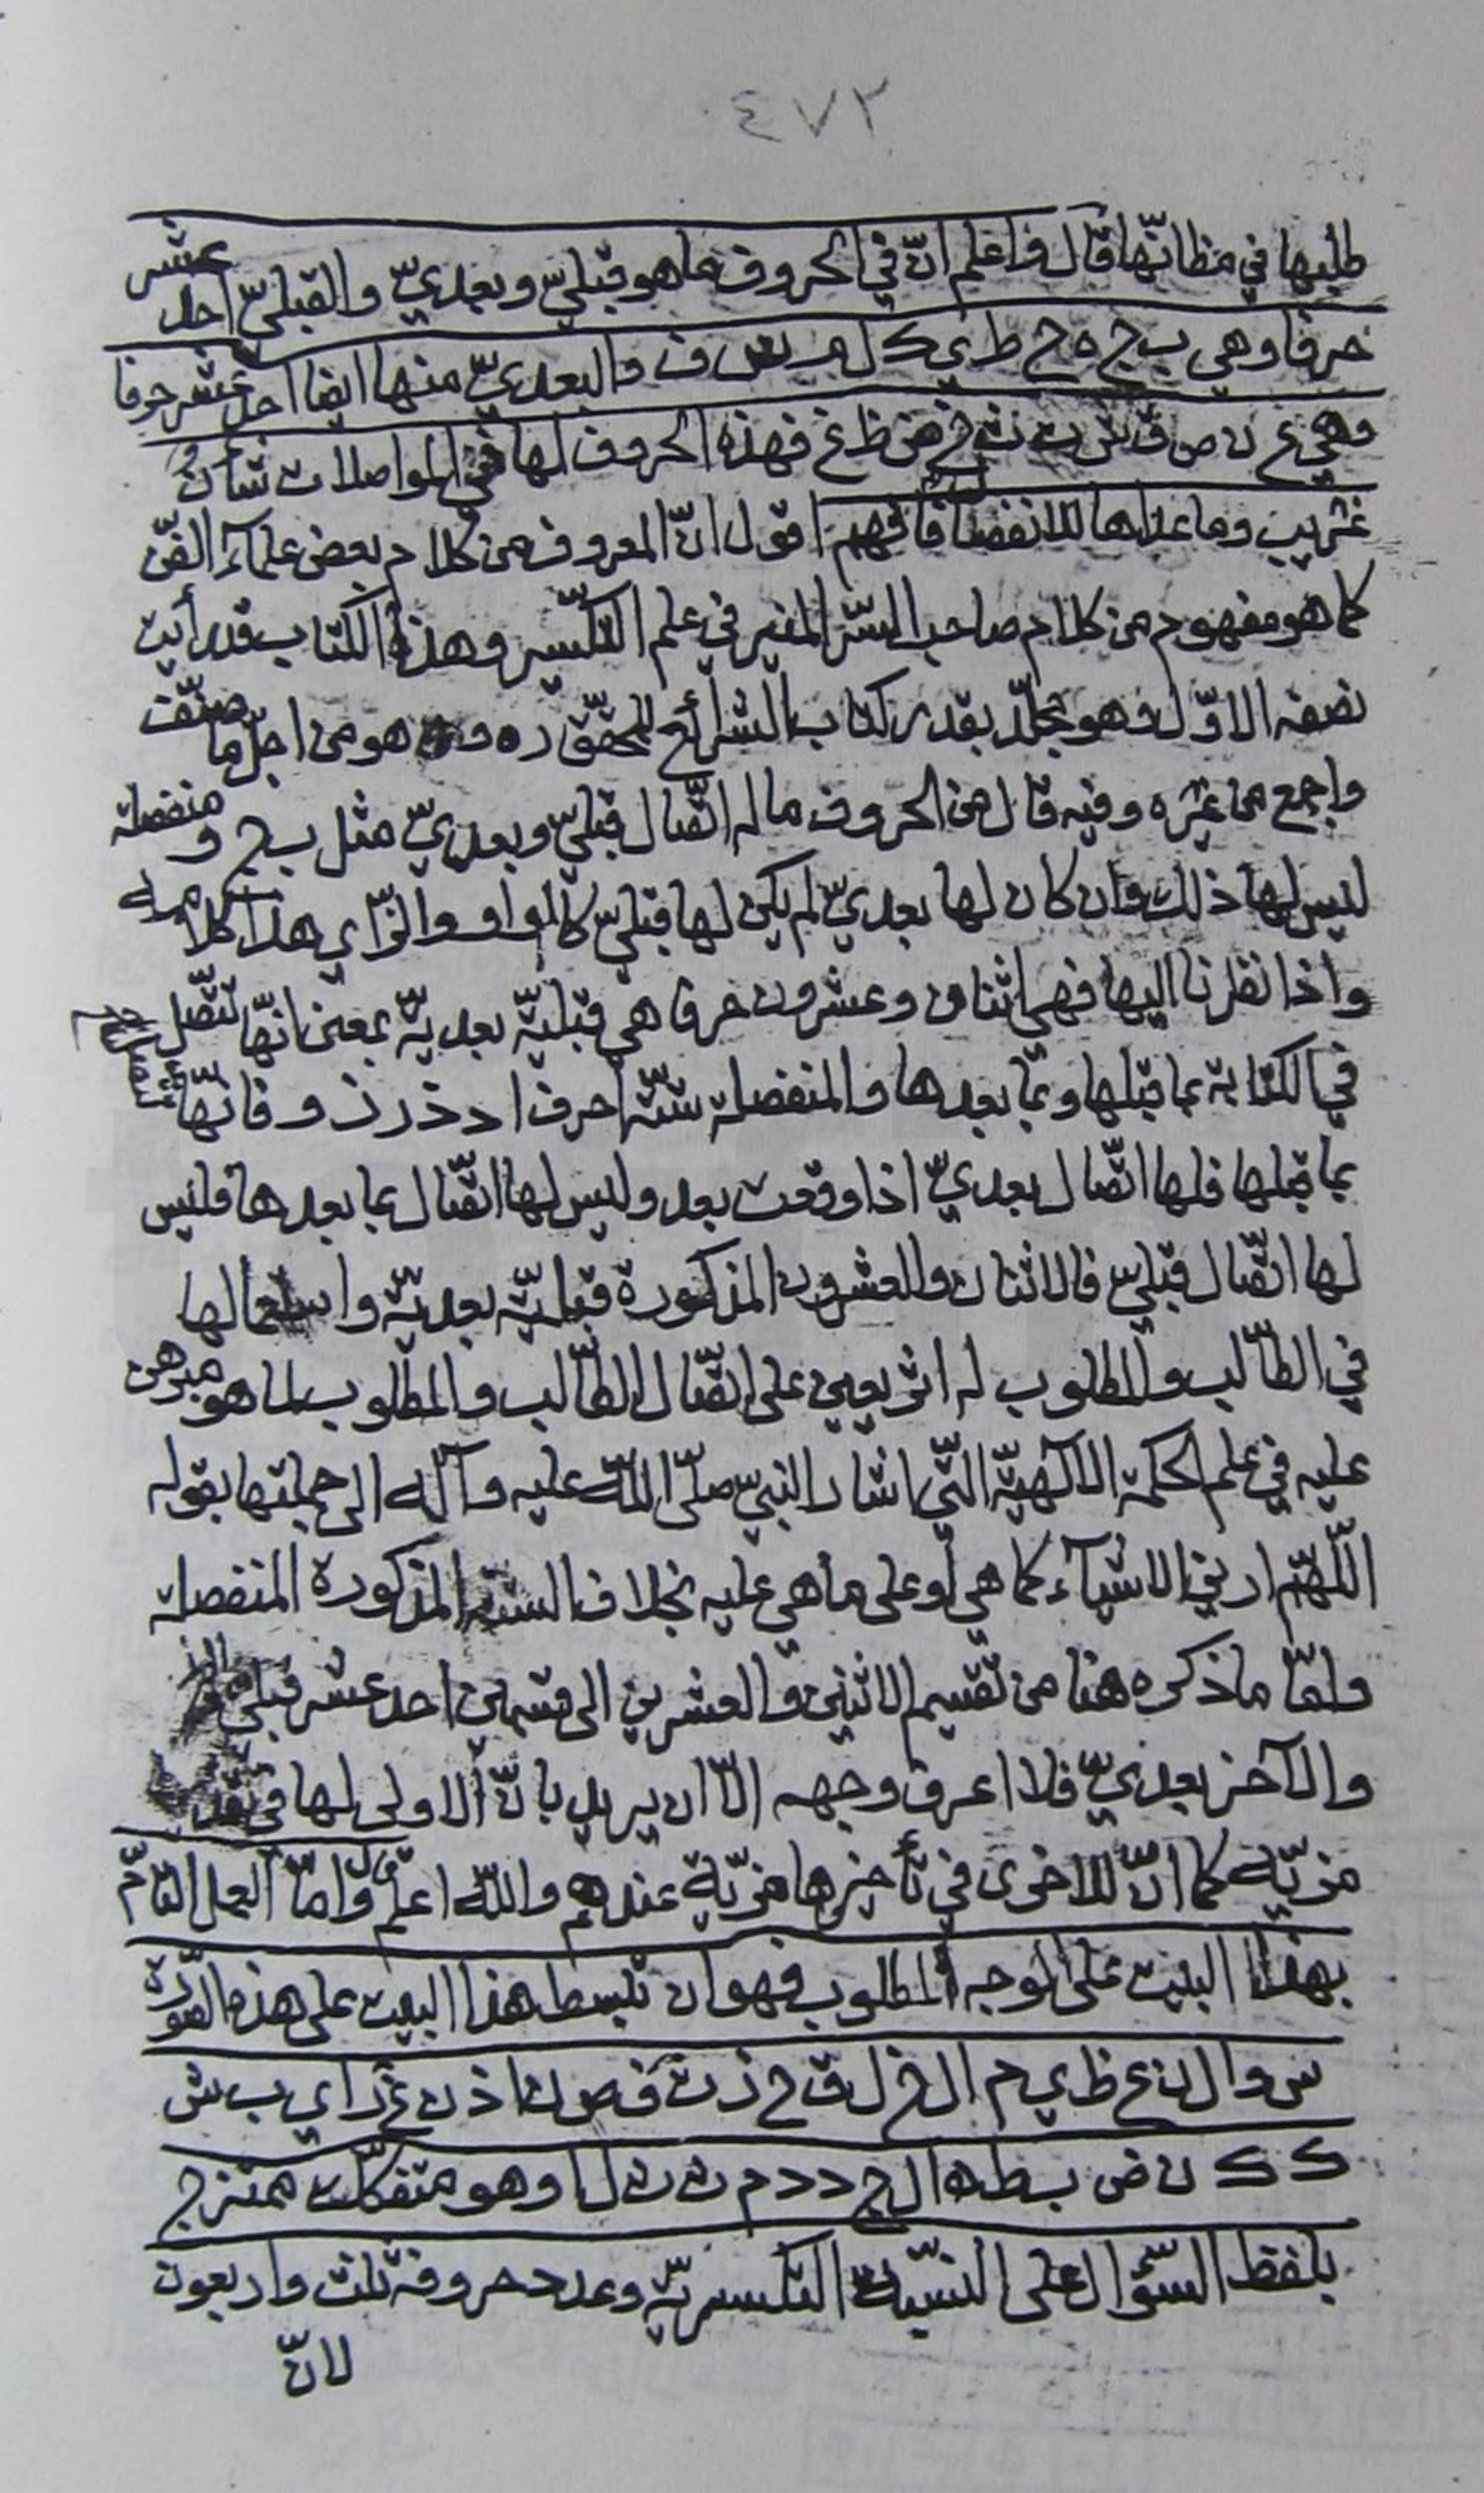 ٤٧٢
طلبها في مظانّها قال فاعلم انّ في الحروف ما هو قبليّ وبعديّ والقبليّ احد عشر
حرفا وهي ب ج ه ح ط ي ك ل م س ف والبعديّ منها ايضا احد عشر حرفا
وهي ع ن ص ق ش ت ث خ ض ظ غ فهذه الحروف لها في المواصلات شأن
غريب وما عداها للانفصال فافهم اقول انّ المعروف من كلام بعض علماء الفنّ
كما هو مفهوم من كلام صاحب السّر المنير في علم التكسير وهذا الكتاب قد رأيت
نصفه الاوّل وهو مجلّد بقدر كتاب الشرائع للمحقّق ره وهو من اجلّ ما صنّف
واجمع من غيره وفيه قال من الحروف ما له اتّصال قبليّ وبعديّ مثل ب ج ومنفصلة
ليس لها ذلك وان كان لها بعديّ لم يكن لها قبليّ كالواو والزّاي هذا كلامه
واذا نظرنا اليها فهي اثنان وعشرون حرفا هي قبليّة بعديّة بمعنى انّها تتّصل
في الكتابة بما قبلها وبما بعدها والمنفصلة ستّة احرف ا د ذ ر ز و فانّها تتّصل
بما قبلها فلها اتّصال بعديّ اذا وقعت بعد وليس لها اتّصال بما بعدها فليس
لها اتّصال قبليّ فالاثنان والعشرون المذكورة قبليّة بعديّة واستعمالها
في الطّالب والمطلوب له اثر يعين على اتّصال الطّالب والمطلوب لما هو مبرهن
عليه في علم الحكمة الالهيّة الّتي اشار النبيّ صلّى اللّه عليه وآله الى جملتها بقوله
اللّهمّ ارني الاشيآء كما هي او على ما هي عليه بخلاف الستة المذكورة المنفصلة
وامّا ما ذكره هنا من تقسيم الاثنين والعشرين الى قسمين احد عشر قبليّ
والآخر بعديّ فلا اعرف وجهه الّا ان يريد بانّ الاولى لها في
مزيّة كما انّ للاخرى في تأخيرها مزيّة عندهم واللّه اعلم قال وامّا العمل التامّ
بهذا البيت على الوجه المطلوب فهو ان تبسط هذا البيت على هذه الصّورة
س و ا ل ن ع ظ ي م ا ل خ ل ق ح ز ت ف ص ن ا ذ ن غ ر ا ي ب ش
ك ك ن ض ب ط ه ا ل ج د د م ث ن ل ا وهو متفكّك ممتزج
بلفظ السّؤال على النسبة التكسيريّة وعدد حروفه ثلث واربعون
لانّ